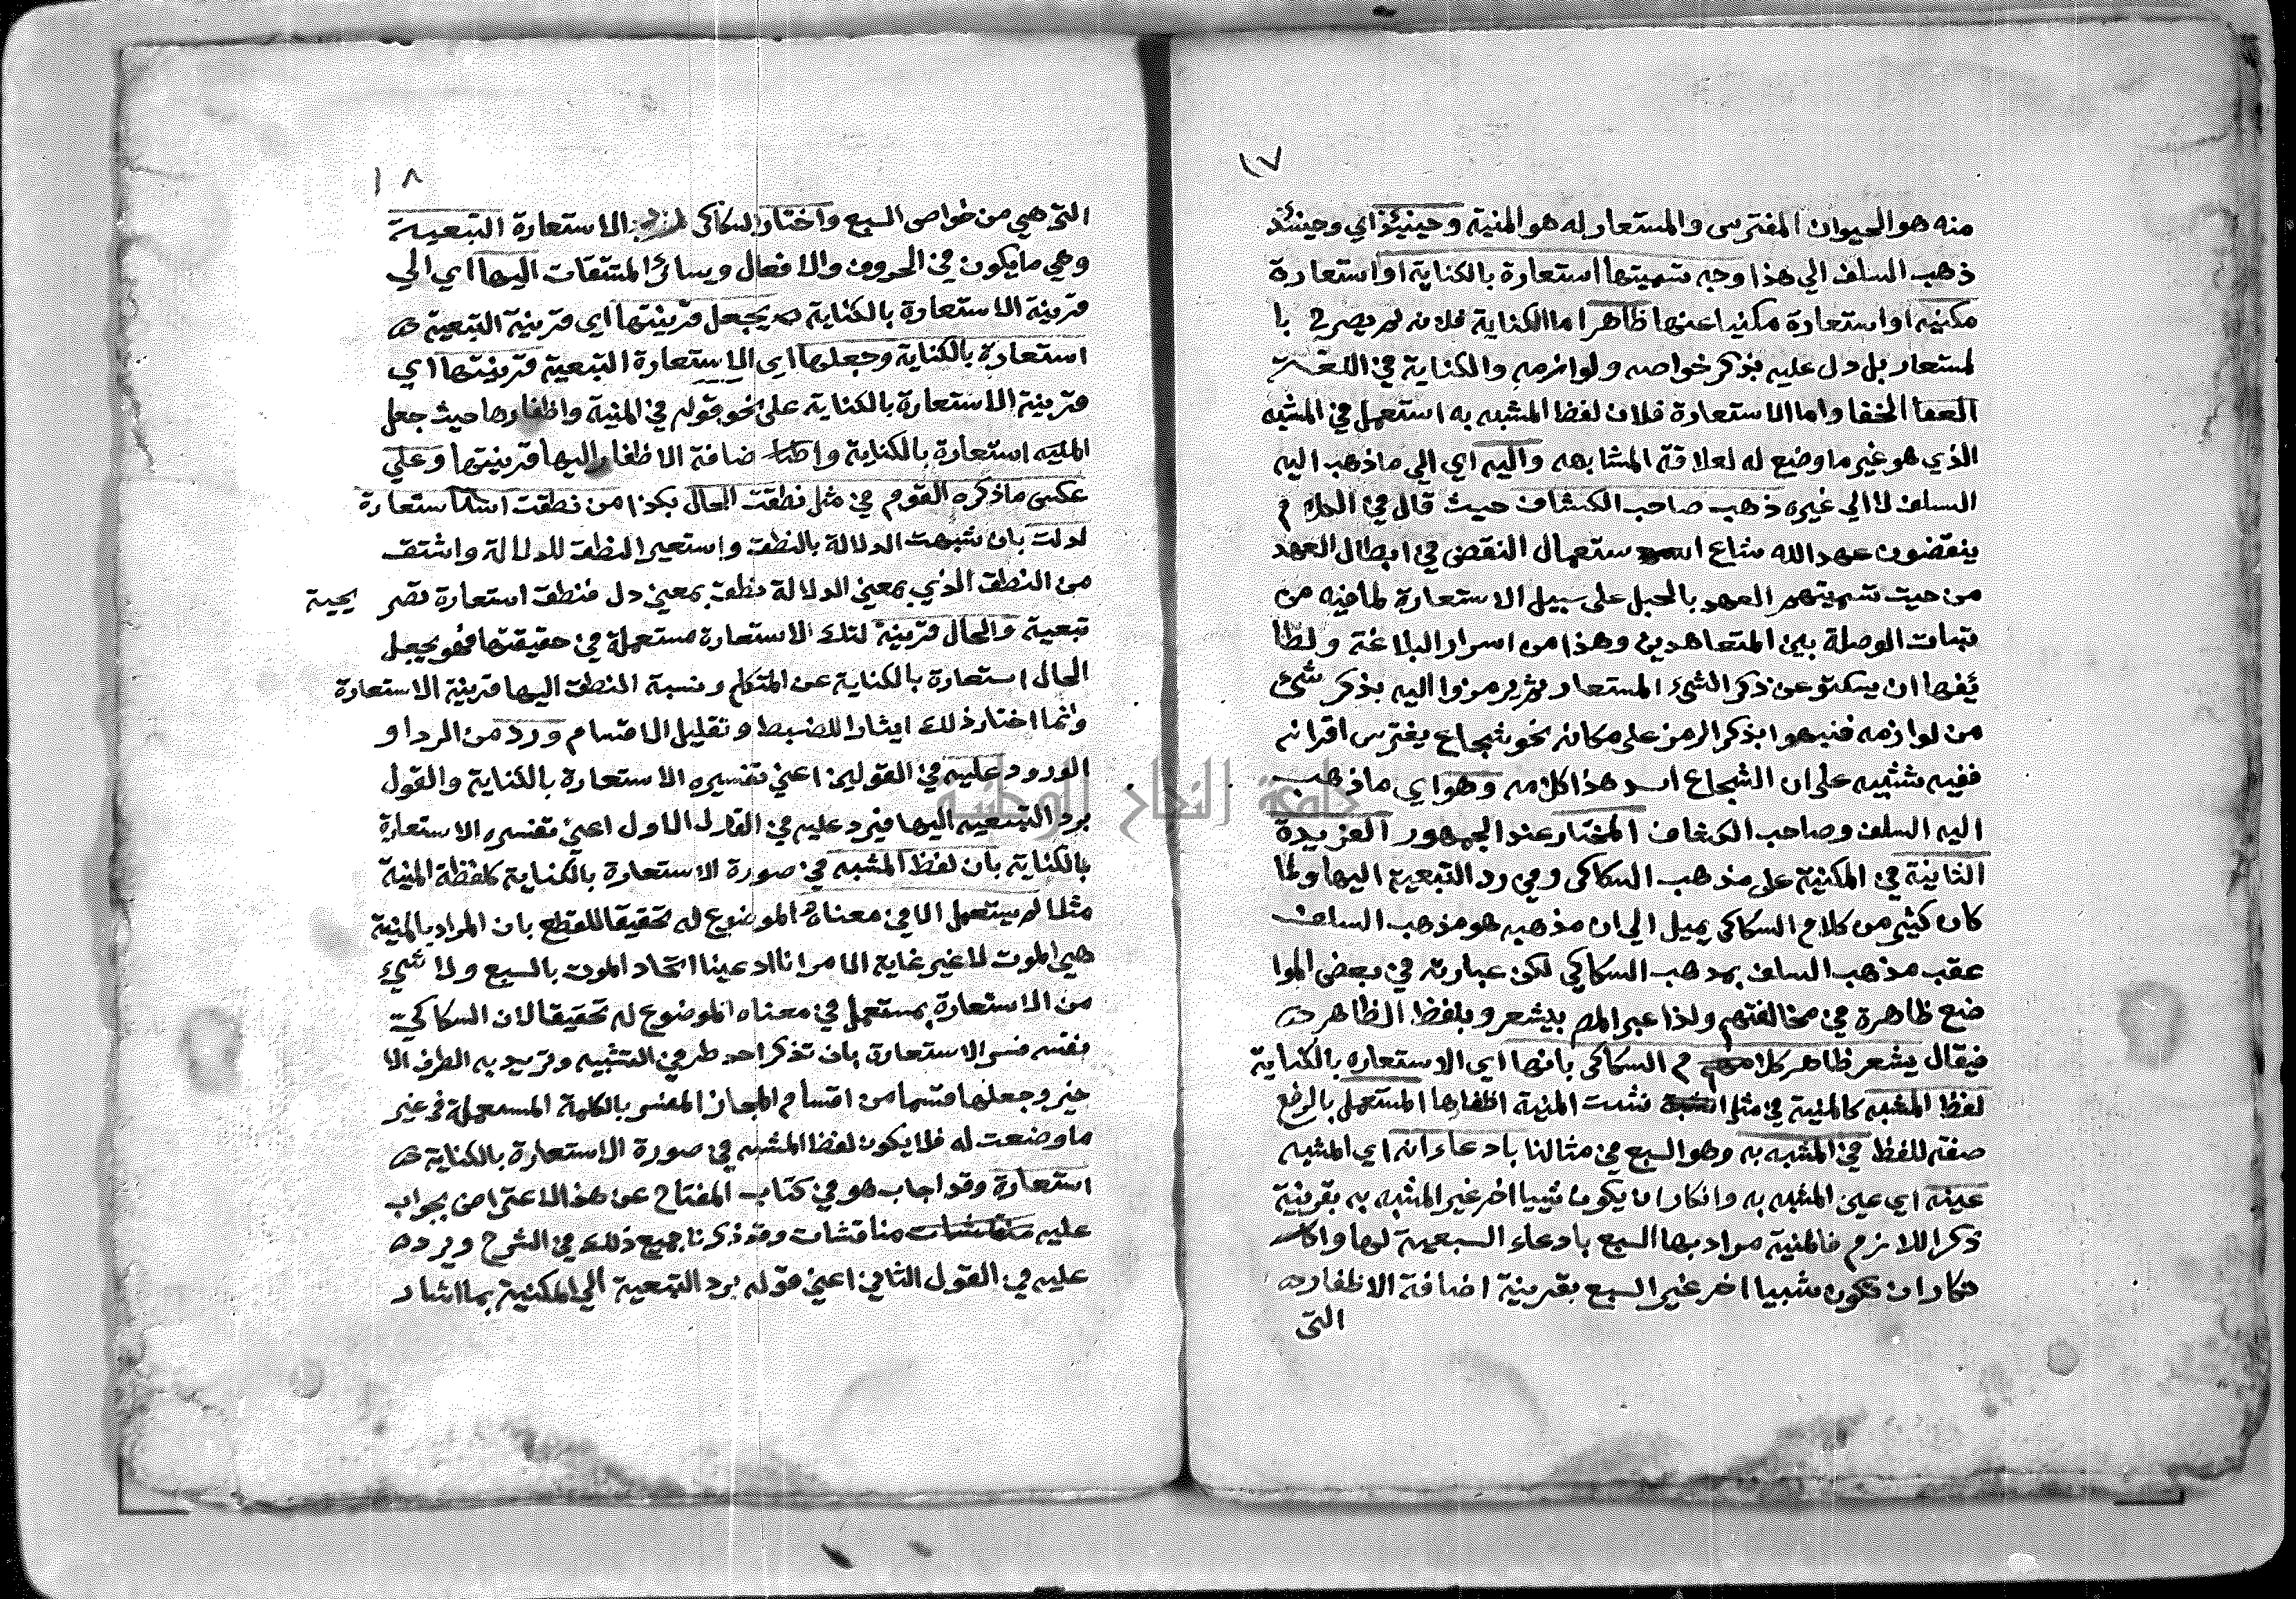 ١٧
منه هو الحيوان المفترس والمستعار له هو المنية وحينئذ اي وحينئذ
ذهب السلف الي هذا وجه تسميتها استعارة بالكناية او استعارة
مكنيه او استعارة مكنيا عنها ظاهر اما الكناية فلانه لم يصرح با
لمستعار بل دل عليه بذكر خواصه ولوازمه والكناية في اللغة
الخفا واما الاستعارة فلان لفظ المشبه به استعمل في المشبه
الذي هو غير ما وضع له لعلاقة المشابهه واليه اي الي ما ذهب اليه
السلف لا الي غيره ذهب صاحب الكشاف حيث قال في
ينقضون عهد الله شاع ستعمال النقض في ابطال العهد
من حيث تسميتهم العهد بالحبل علي سبيل الاستعارة لما فيه من
ثبات الوصلة بين المتعاهدين وهذا من اسرار البلاغة ولطا
ئفها ان يسكتو عن ذكر الشئ المستعار ثم يرمزوا اليه بذكر شئ
من لوازمه فنبهوا بذكر الرمز علي مكانه نحو شجاع يفترس اقرانه
ففيه تنبيه علي ان الشجاع اسد هذا كلامه وهو اي ما ذهب
اليه السلف وصاحب الكشاف المختار عند الجمهور الفريدة
الثانية في المكنية علي مذهب السكاكي وفي رد التبعية اليها ولما
كان كثير من كلام السكاكي يميل الي ان مذهبه هو مذهب السلف
عقب مذهب السلف بمذهب السكاكي لكن عبارته في بعض الموا
ضع ظاهرة في مخالفتهم ولذا عبر المص بيشعر وبلفظ الظاهر
فقال يشعر ظاهر كلام السكاكي بانها اي الاستعاره بالكناية
لفظ المشبه كالمنية في مثل نشبت المنية اظفارها المستعمل بالرفع
صفة للفظ في المشبه به وهو السبع في مثالنا بادعاء انه اي المشبه
عينه اي عين المشبه به وانكار ان يكون شيا اخر غير المشبه به بقرينة
ذكر اللازم فالمنية مراد بها السبع بادعاء السبعية لها وا
نكار ان تكون شيا اخر غير السبع بقرينة اضافة الاظفار
التي
١٨
التي هي من خواص السبع واختار السكاكي الاستعارة التبعية
وهي ما يكون في الحروف والافعال وسائر المشتقات اليها اي الي
قرينة الاستعارة بالكناية يجعل قرينتها اي قرينة التبعية
استعارة بالكناية وجعلها اي الاستعارة التبعية قرينتها اي
قرينة الاستعارة بالكناية علي نحو قوله في المنية واظفارها حيث جعل
المنيه استعارة بالكناية وا ضافة الاظفار اليها قرينتها وعلي
عكس ما ذكره القوم في مثل نطقت الحال بكذا من نطقت استعارة
لدلت بان شبهت الدلالة بالنطق واستعير النطق للدلالة واشتق
من النطق الذي بمعني الدلالة نطق بمعني دل فنطق استعارة تصر يحية
تبعية والحال قرينة لتلك الاستعارة مستعملة في حقيقتها فهو يجعل
الحال استعارة بالكناية عن المتكلم ونسبة النطق اليها قرينة الاستعارة
وانما اختار ذلك ايثارا للضبط وتقليل الاقسام ورد من الرد او
الورود عليه في القولين اعني تفسيره الاستعارة بالكناية والقول
برد التبعيه اليها فيرد عليه في القول الاول اعني تفسيره الاستعارة
بالكناية بان لفظ المشبه في صورة الاستعارة بالكناية كلفظة المنية
مثلا لم يستعمل الا في معناه الموضوع له تحقيقا للقطع بان المراد بالمنية
هي الموت لا غير غاية الامر اننا ادعينا اتحاد الموت بالسبع ولا شئ
من الاستعارة بمستعمل في معناه الموضوع له تحقيقا لان السكاكي
نفسه فسر الاستعارة بان تذكر احد طرفي التشبيه وتريد به الطرف الا
خر وجعلها قسما من اقسام المجاز المفسر بالكلمة المستعملة في غير
ما وضعت له فلا يكون لفظ المشبه في صورة الاستعارة بالكناية
استعارة وقد اجاب هو في كتاب المفتاح عن هذا الاعتراض بجواب
عليه مناقشات وقد ذكرنا جميع ذلك في الشرح ويرد
عليه في القول الثاني اعني قوله برد التبعية الي المكنية بما اشار
جامعة النجاح الوطنية